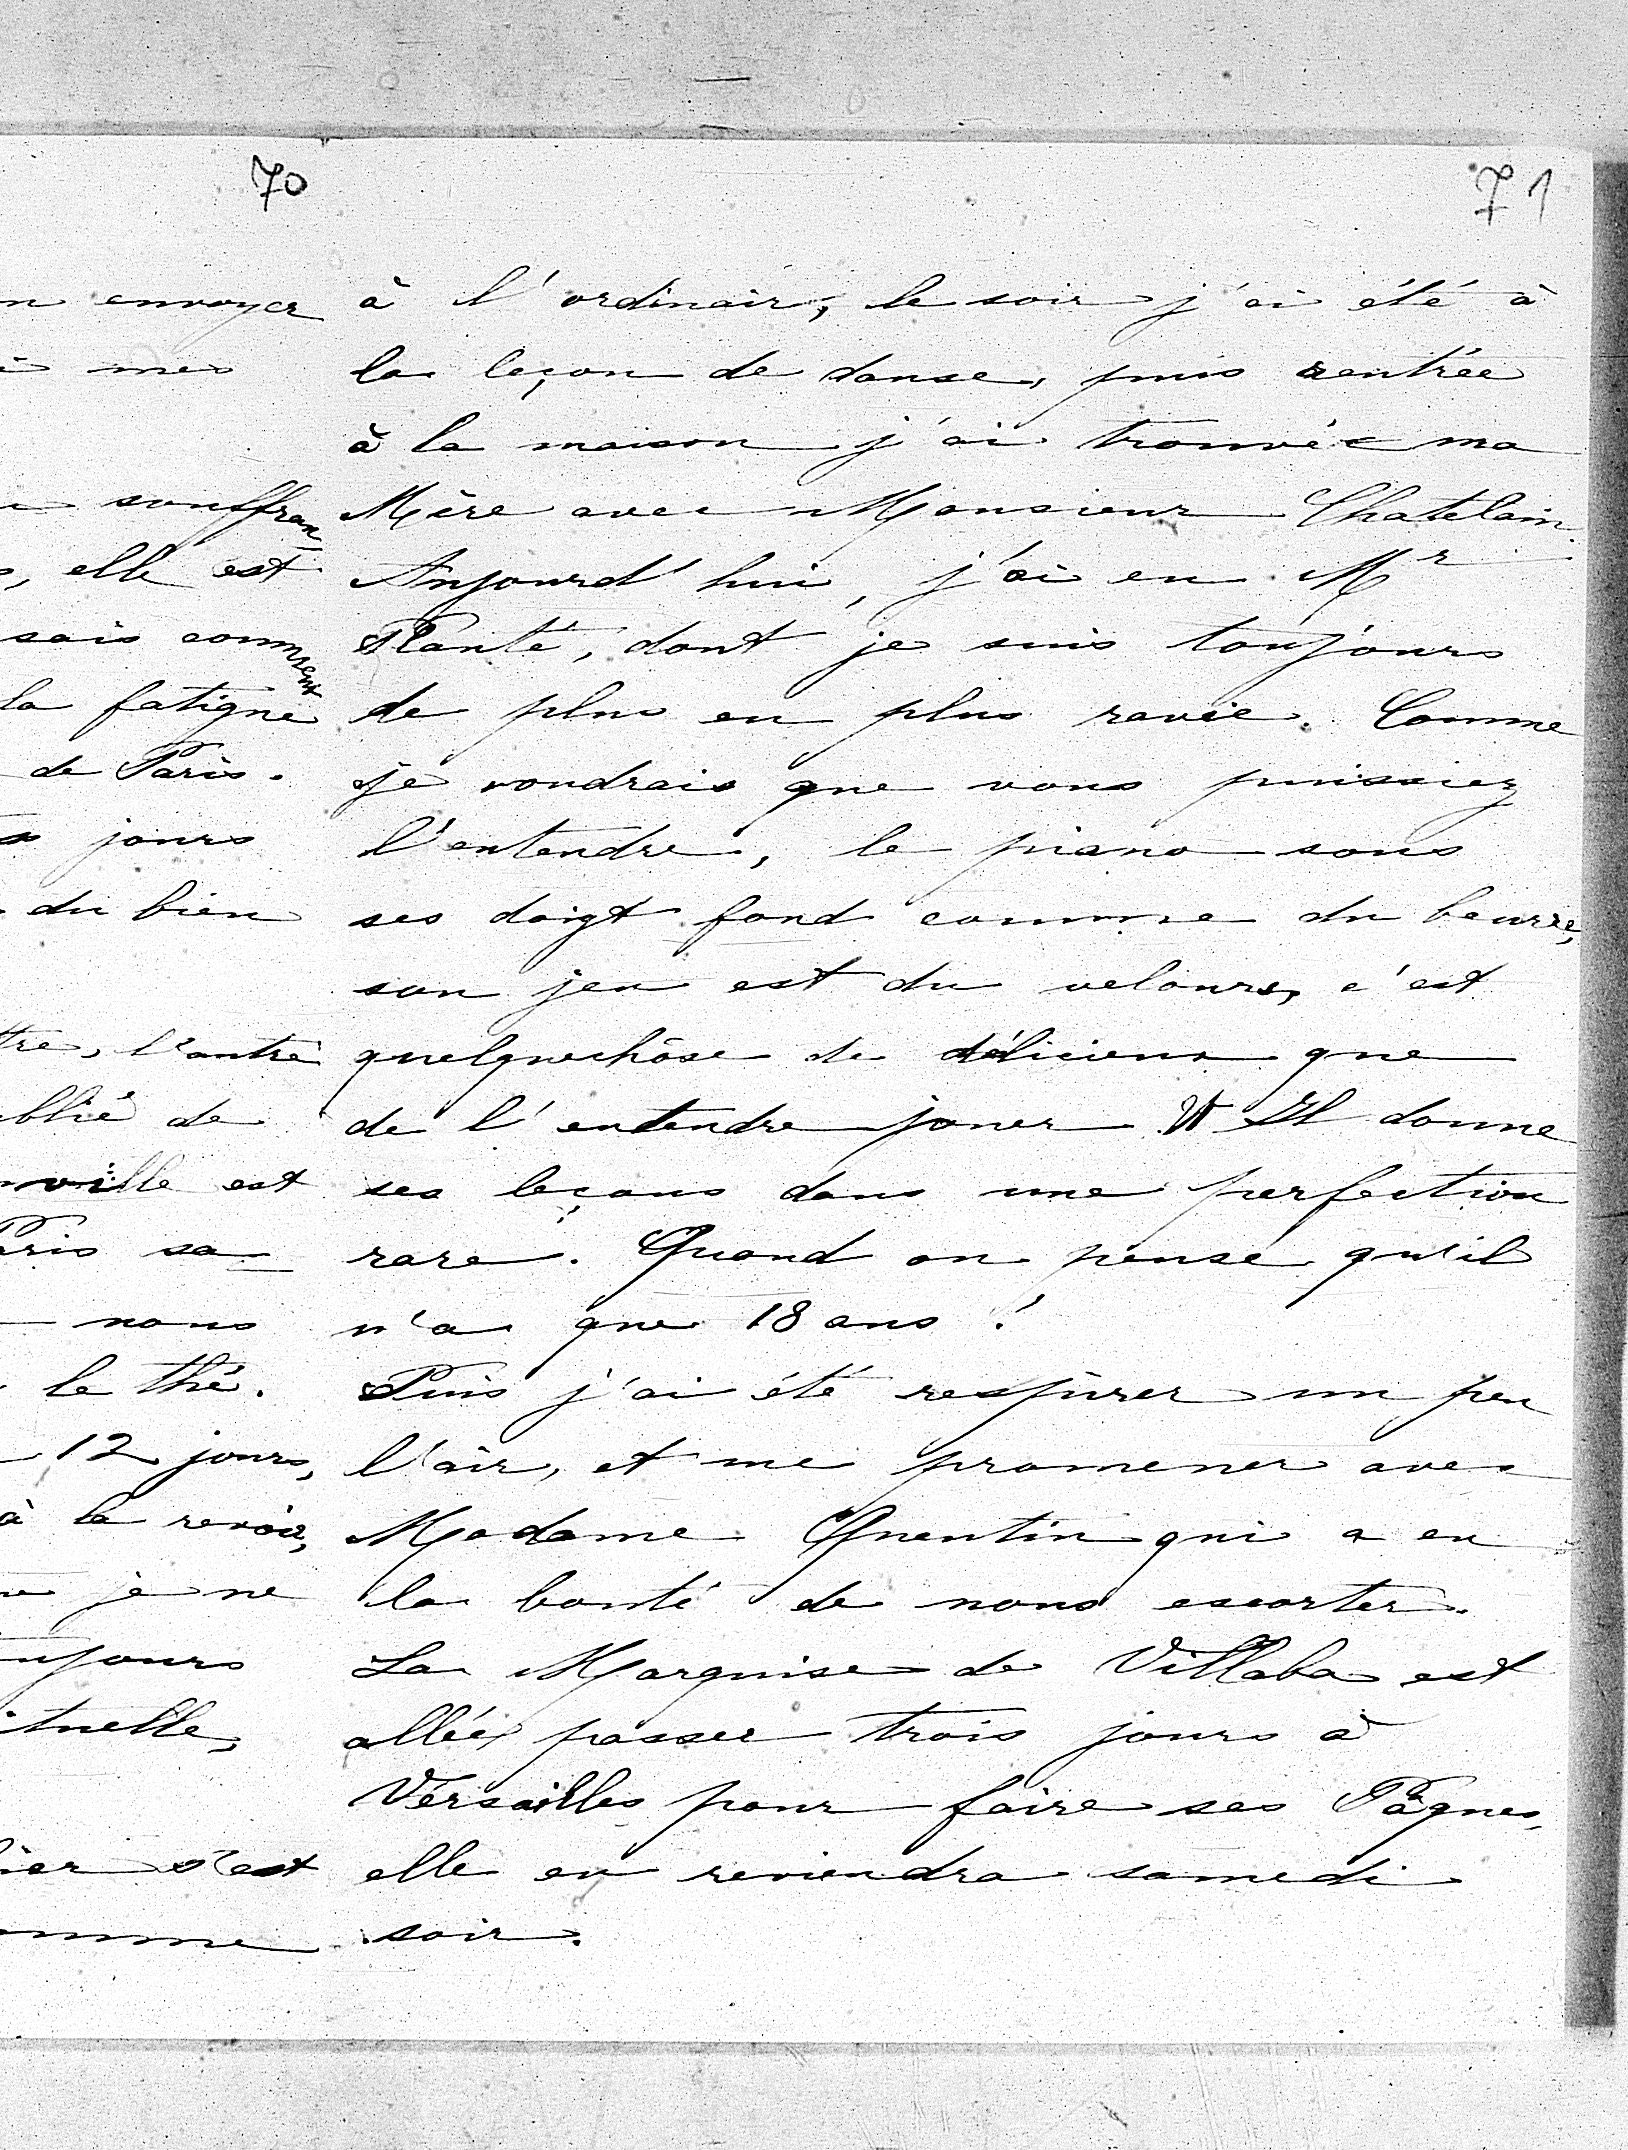 70
n envoyer
mes
souffran
, elle est
sais comment
la fatigue
de Paris.
jours
du bien
tre, l'autre
ublié de
ville est
Paris sa
nous
le thé.
12 jours,
à la revoir,
je ne
ujours
ituelle,
hier s'est
omme
71
à l'ordinair, le soir j'ai été à
la leçon de danse, puis rentrée
à la maison j'ai trouvée ma
Mère avec Monsieur Chatelain.
Aujourd'hui, j'ai eu Mr
Planté, dont je suis toujours
de plus en plus ravie. Comme
je voudrais que vous puissiez
l'entendre, le piano sous
ses doigt fond comme du beurre,
son jeu est du velours, c'est
quelquechôse de délicieux que
de l'entendre jouer Il donne
ses leçons dans une perfection
rare. Quand on pense qu'il
n'a que 18 ans !
Puis j'ai été respirer un peu
l'air, et me promener avec
Madame Quentin qui a eu
la bonté de nous escorter.
La Marquise de Villaba est
allée passer trois jours à
Versailles pour faire ses Pâques,
elle en reviendra samedi
soir.